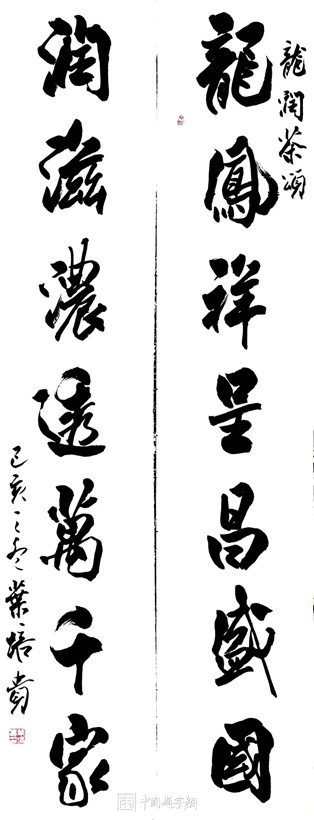 龍潤茶頌
龍鳳祥呈昌盛國
潤滋濃透萬千家
己亥之冬葉培貴
中國題字網